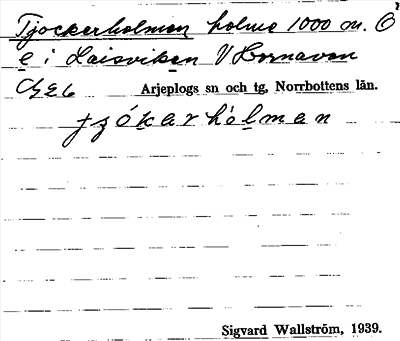 Tjockerholmen holme 1000 m. O
e i Laisviken V Hornavan
Arjeplogs sn och tg, Norrbottens län.
Sigvard Wallström, 1939.